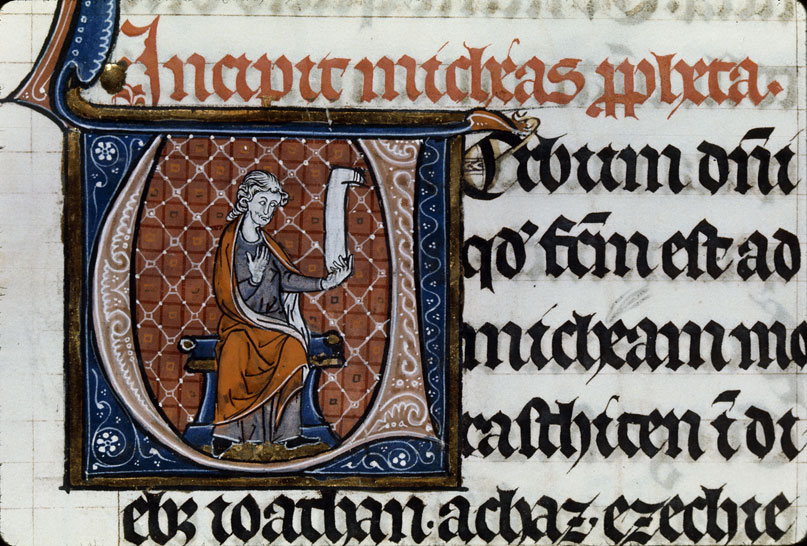 Incipit micheas ꝓpheta.
Verbum dn̄i
qd' fc̄m est ad
micheam mo
rasthiten ī di
ebꝫ ioathan · achaz · ezechie